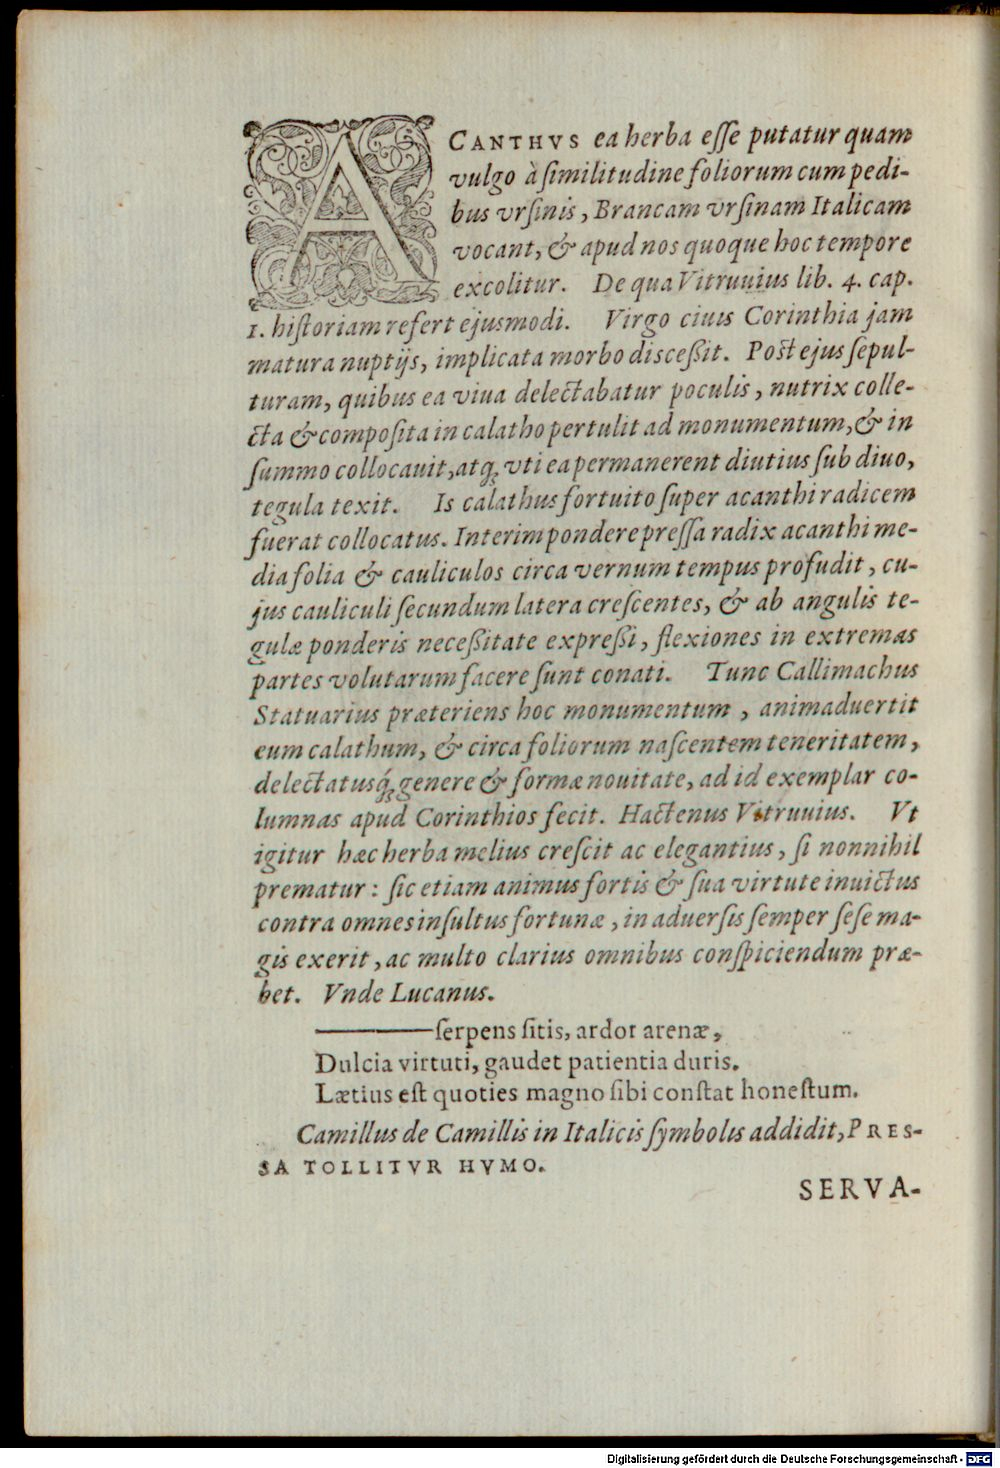 ACANTHVS ea herba eſſe putatur quam
vulgo à ſimilitudine foliorum cum pedi-
bus vrſinis, Brancam vrſinam Italicam
vocant, & apud nos quoque hoc tempore
excolitur. De qua Vitruuius lib. 4. cap.
1. hiſtoriam refert ejusmodi. Virgo ciuis Corinthia jam
matura nuptijs, implicata morbo diſceßit. Poſt ejus ſepul-
turam, quibus ea viua delectabatur poculis, nutrix colle-
cta & compoſita in calatho pertulit ad monumentum, & in
ſummo collocauit, atq; vti ea permanerent diutius ſub diuo,
tegula texit. Is calathus fortuito ſuper acanthi radicem
fuerat collocatus. Interim pondere preſſa radix acanthi me-
dia folia & cauliculos circa vernum tempus profudit, cu-
jus cauliculi ſecundum latera creſcentes, & ab angulis te-
gulæ ponderis neceßitate expreßi, flexiones in extremas
partes volutarum facere ſunt conati. Tunc Callimachus
Statuarius præteriens hoc monumentum, animaduertit
eum calathum, & circa foliorum naſcentem teneritatem,
delectatusq́; genere & formæ nouitate, ad id exemplar co-
lumnas apud Corinthios fecit. Hactenus Vitruuius. Vt
igitur hæc herba melius creſcit ac elegantius, ſi nonnihil
prematur: ſic etiam animus fortis & ſua virtute inuictus
contra omnes inſultus fortunæ, in aduerſis ſemper ſeſe ma-
gis exerit, ac multo clarius omnibus conſpiciendum præ-
bet. Vnde Lucanus.
———ſerpens ſitis, ardor arenæ,
Dulcia virtuti, gaudet patientia duris.
Lætius eſt quoties magno ſibi conſtat honeſtum.
Camillus de Camillis in Italicis ſymbolis addidit, PRES-
SA TOLLITVR HVMO.
SERVA-
Digitalisierung gefördert durch die Deutsche Forschungsgemeinschaft - DFG